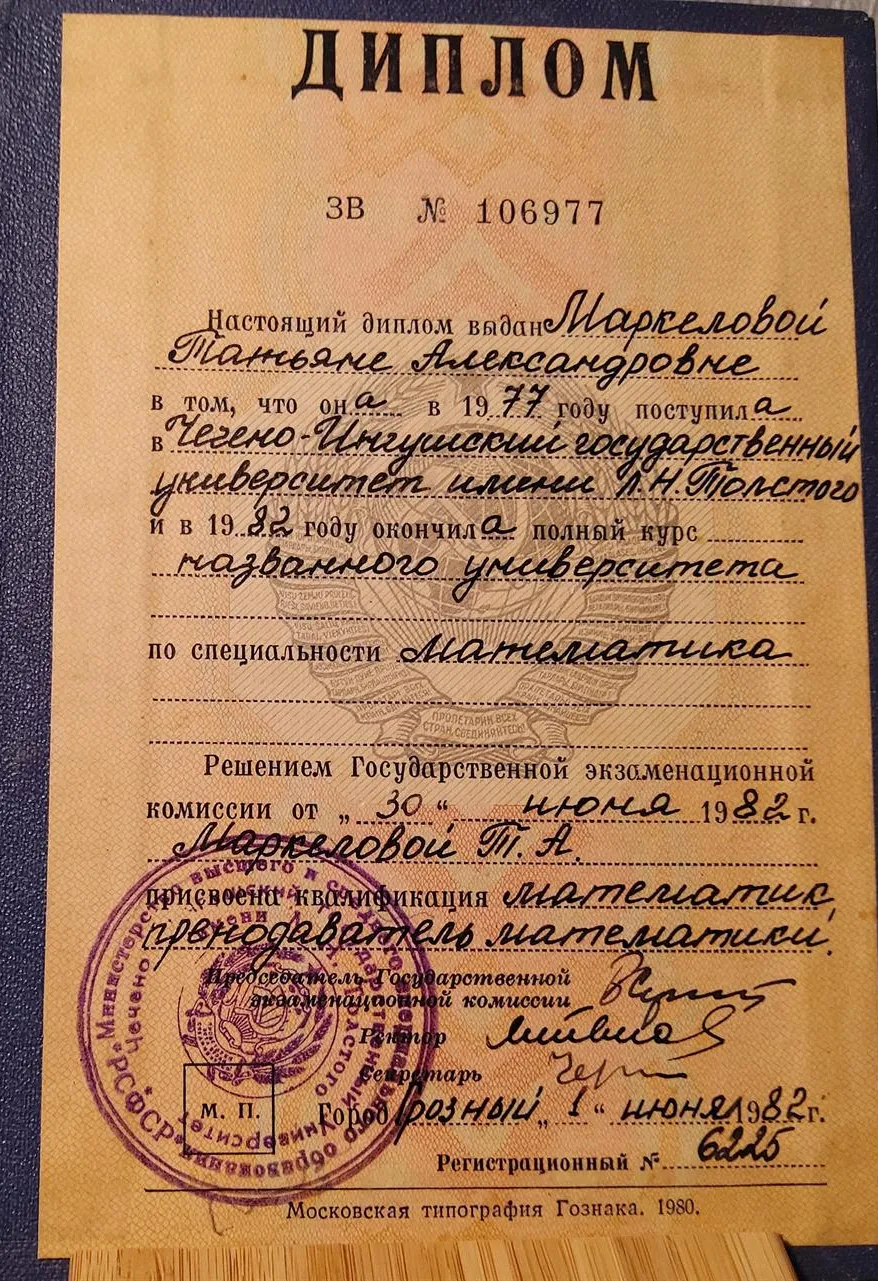 ДИПЛОМ
ЗВ № 106977
Настоящий диплом выдан Маркеловой
Татьяне Александровне
в том, что она в 1977 году поступила
в Чечено-Ингушский государственный
университет имени Л.Н.Толстого
и в 1982 году окончила полный курс
названного университета
по специальности математика
ПРОЛЕТАРИИ ВСЕХ
СТРАН, СОЕДИНЯЙТЕСЬ!
Решением Государственной экзаменационной
комиссии от „30“ июня 1982 г.
Маркеловой Т. А.
присвоена квалификация математик,
преподаватель математики.
Председатель Государственной
экзаменационной комиссии
Ректор
Секретарь
М. П.
Город Грозный „1“ июня 1982 г.
Регистрационный № 6225
Московская типография Гознака. 1980.